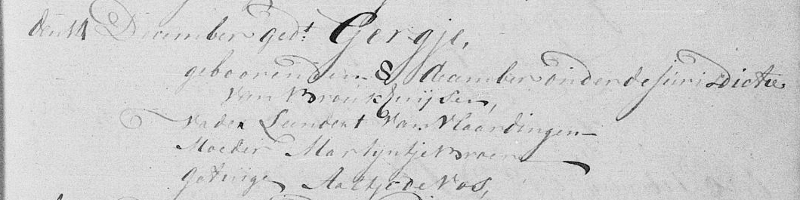 den 14 December ged:t Gergje,
gebooren den 8 december onder de Juris dictie
Van Broukhuijsen,
Vader Leendert Van Vlaardingen
Moeder Martyntje Broer
Getuige Aaltje de Vos,